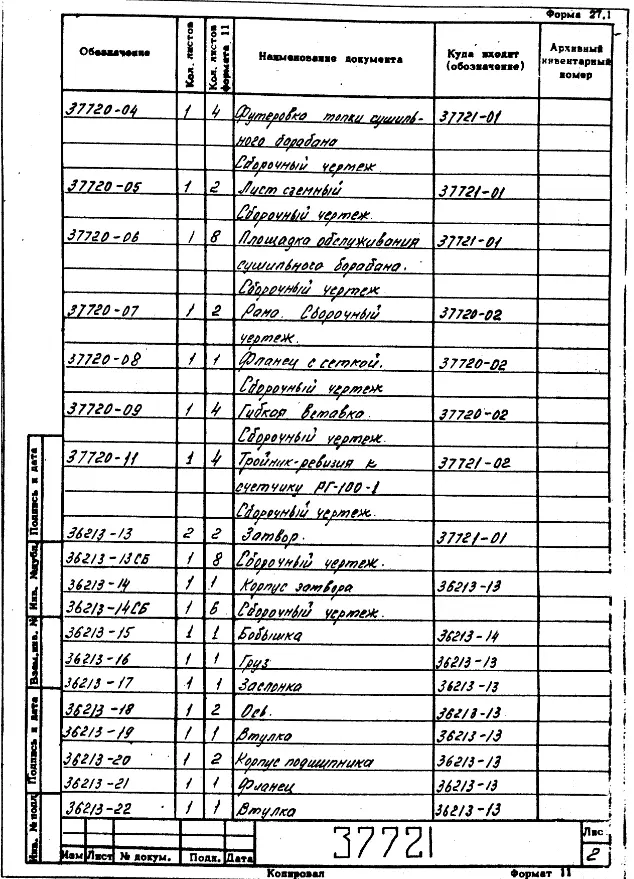 Форма 27,1
Обозначение Кол. листов Кол. листов формата 11 Наименование документа Куда входит (обозначение) Архивный инвентарный номер
37720-04 1 4 Футеровка топки сушиль- 37721-01
ного барабана
Сборочный чертеж
37720-05 1 2 Лист съемный 37721-01
Сборочный чертеж
37720-06 1 8 Площадка обслуживания 37721-01
сушильного барабана.
Сборочный чертеж
37720-07 1 2 Рама. Сборочный 37720-02
чертеж.
37720-08 1 1 Фланец с сеткой. 37720-02
Сборочный чертеж
37720-09 1 4 Гибкая вставка. 37720-02
Сборочный чертеж.
37720-11 1 4 Тройник-ревизия к 37721-02
счетчику РГ-100-1
Сборочный чертеж.
36213-13 2 2 Затвор. 37721-01
36213-13СБ 1 8 Сборочный чертеж.
36213-14 1 1 Корпус затвора 36213-13
36213-14СБ 1 6 Сборочный чертеж.
36213-15 1 1 Бобышка 36213-14
36213-16 1 1 Груз 36213-13
36213-17 1 1 Заслонка 36213-13
36213-18 1 2 Ось. 36213-13
36213-19 1 1 Втулка 36213-13
36213-20 1 2 Корпус подшипника 36213-13
36213-21 1 1 Фланец 36213-13
36213-22 1 1 Втулка 36213-13
Подпись и дата
Инв. №дубл.
Взам.инв. №
Подпись и дата
Инв. № подл.
Изм Лист № докум. Подп. Дата
37721
Лис
2
Копировал Формат 11